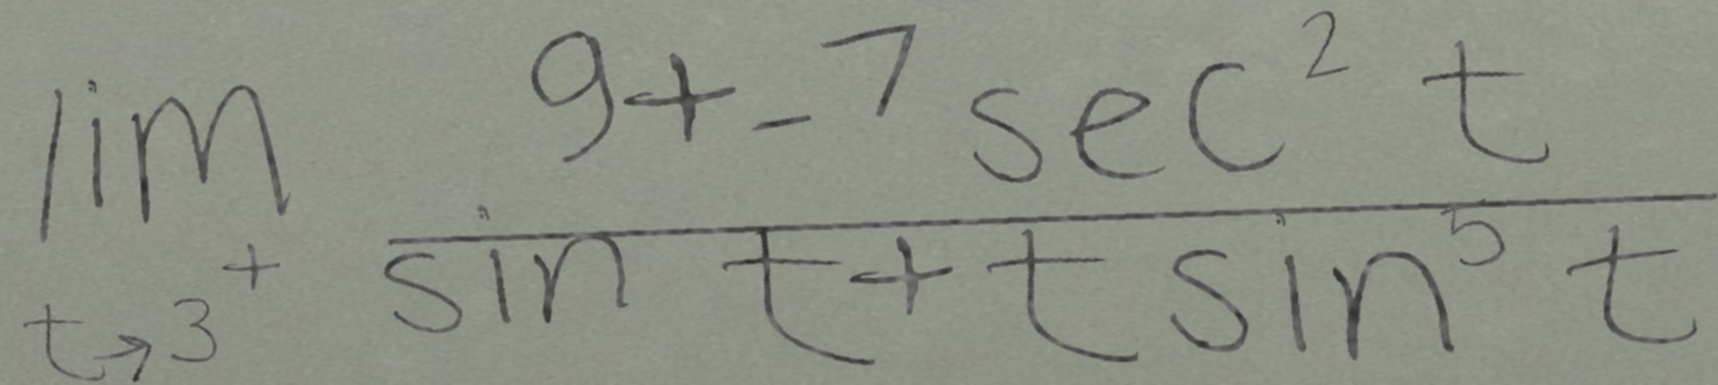 \lim_{t \to 3^+} \frac{9 + -7 \sec^2 t}{\sin t + t \sin^5 t}